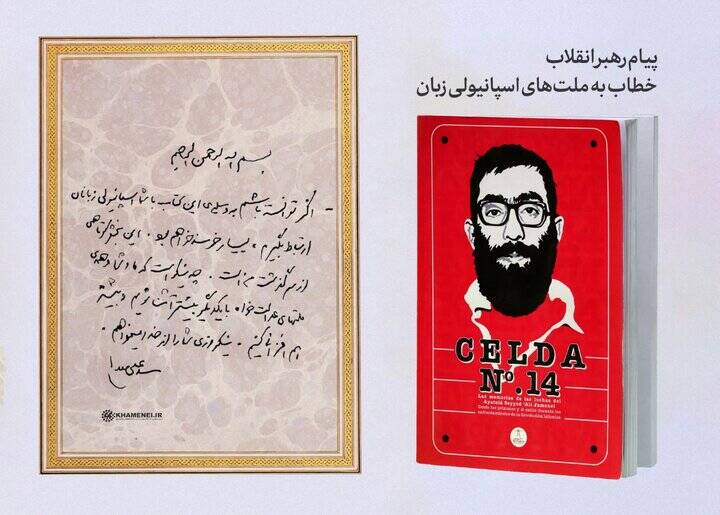 پیام رهبر انقلاب
خطاب به ملت‌های اسپانیولی زبان
بسم الله الرحمن الرحیم
- اگر توانسته باشم به وسیله‌ی این کتاب با شما اسپانیولی زبانان
ارتباط بگیرم، بسیار خرسند خواهم بود. این بخش کوتاهی
از سرگذشت من است. چه نیکو است که ما و شما و همه‌ی
ملتهای عدالت خواه با یکدیگر بیشتر آشنا شویم و بیشتر
هم افزائی کنیم. نیکروزی شما را از خدا میخواهم.
سید علی خامنه‌ای
KHAMENEI.IR
CELDA
Nº.14
Las memorias de las luchas del
Ayatolá Seyyed 'Alí Jameneí
Desde las prisiones y el exilio durante los
enfrentamientos de la Revolución Islámica